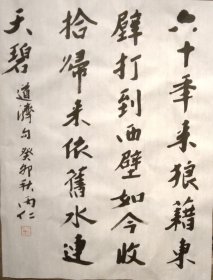 六十年来狼藉东
壁打到西壁如今收
拾归来依旧水连
天碧 道济句 癸卯秋 丙仁